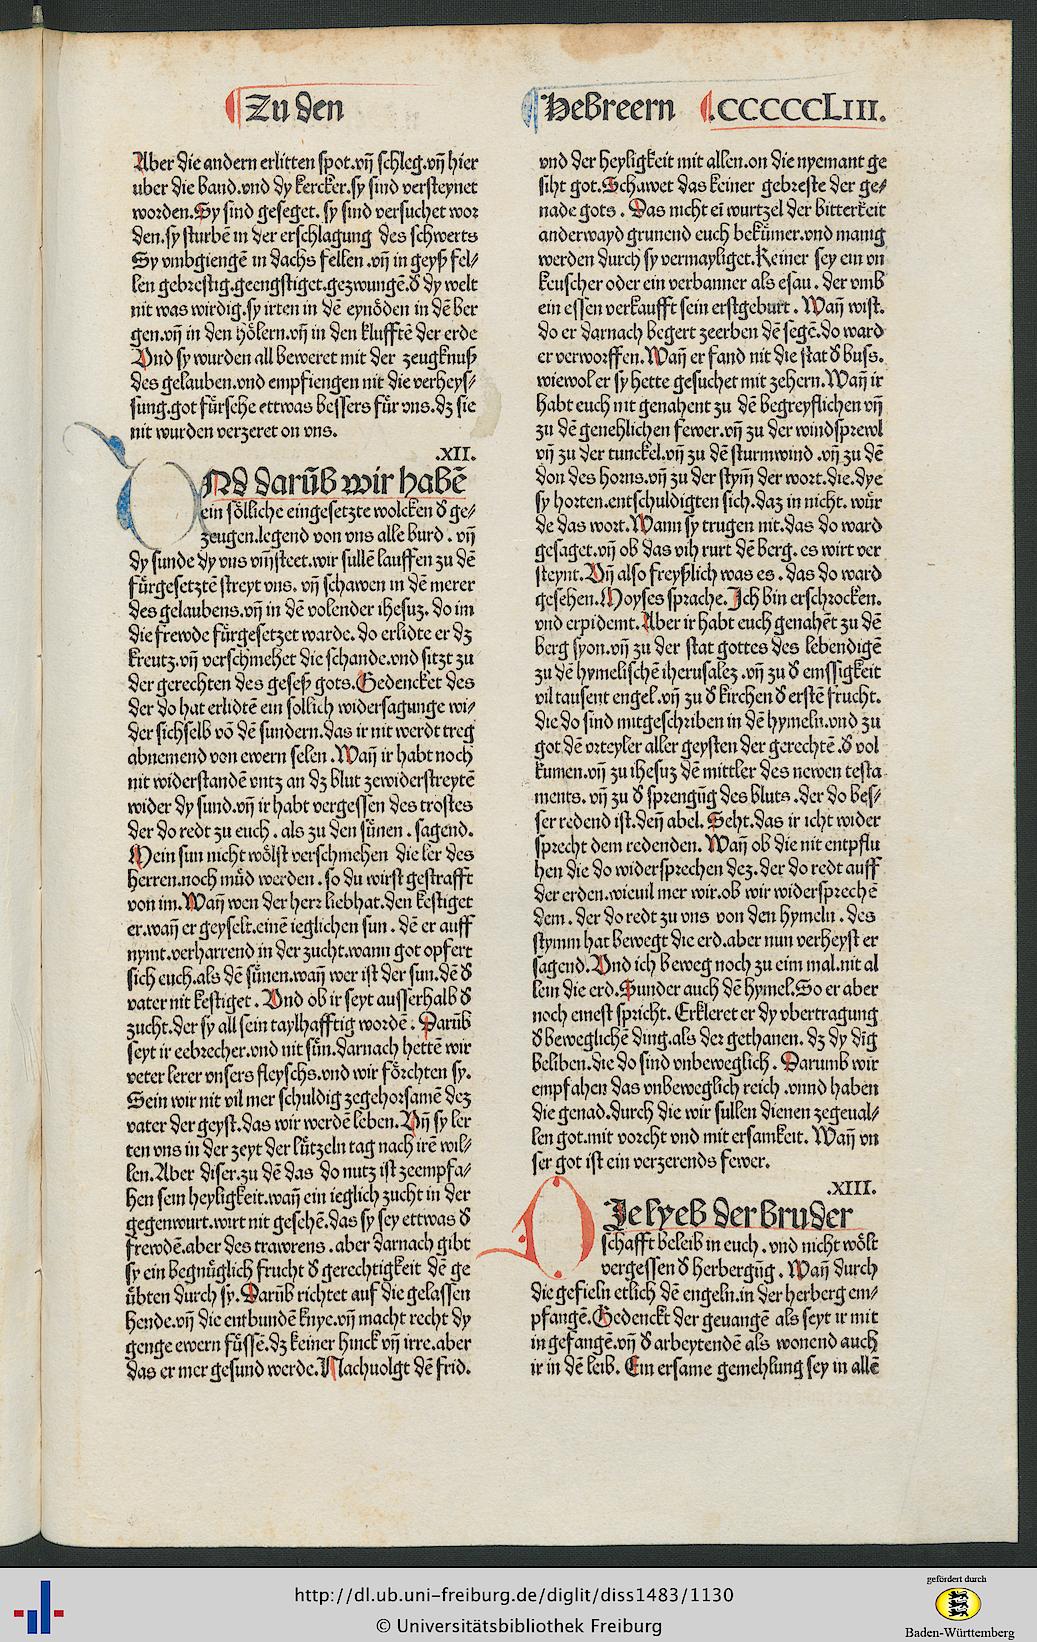 Zu den
Hebreern .CCCCCLIII.
Aber die andern erlitten spot.vñ schleg.vñ hier
uber die band.vnd dy kercker.sy sind versteynet
worden.Sy sind geseget. sy sind versuchet wor
den.sy sturbē in der erschlagung des schwerts
Sy vmbgiengē in dachs fellen .vñ in geyß fel⸗
len gebrestig.geengstiget.gezwungē.d dy welt
nit was wirdig.sy irten in dē eynöden in dē ber
gen.vñ in den hölern.vñ in den klufftē der erde
Vnd sy wurden all beweret mit der zeugknuß
des gelauben.vnd empfiengen nit die verheys⸗
sung.got fürsche ettwas bessers für vns.dz sie
nit wurden verzeret on vns.
.XII.
VNd darūb wir habē
ein sölliche eingesetzte wolcken d ge⸗
zeugen.legend von vns alle burd . vñ
dy sunde dy vns vmsteet.wir sullē lauffen zu dē
fürgesetztē streyt vns. vñ schawen in dē merer
des gelaubens.vñ in dē volender ihesuz. do im
die frewde fürgesetzet warde. do erlidte er dz
kreutz.vñ verschmehet die schande.vnd sitzt zu
der gerechten des geseß gots.Gedencket des
der do hat erlidtē ein sollich widersagunge wi⸗
der sichselb vō dē sundern.das ir nit werdt treg
abnemend von ewern selen .Wañ ir habt noch
nit widerstandē vntz an dz blut zewiderstreytē
wider dy sund.vñ ir habt vergessen des trostes
der do redt zu euch . als zu den sünen . sagend.
Mein sun nicht wölst verschmehen die ler des
herren.noch müd werden . so du wirst gestrafft
von im.Wañ wen der herr liebhat.den kestiget
er.wañ er geyselt.einē ieglichen sun . dē er auff
nymt.verharrend in der zucht.wann got opfert
sich euch.als dē sünen.wañ wer ist der sun.dē d
vater nit kestiget . Vnd ob ir seyt ausserhalb d
zucht.der sy all sein taylhafftig wordē . Darūb
seyt ir eebrecher.vnd nit sün.darnach hettē wir
veter lerer vnsers fleyschs.vnd wir förchten sy.
Sein wir nit vil mer schuldig zegehorsamē dez
vater der geyst.das wir werdē leben. Vñ sy ler
ten vns in der zeyt der lützeln tag nach irē wil⸗
len.Aber diser.zu dē das do nutz ist zeempfa⸗
hen sein heyligkeit.wañ ein ieglich zucht in der
gegenwurt.wirt nit gesehē.das sy sey ettwas d
frewdē.aber des trawrens .aber darnach gibt
sy ein begnüglich frucht d gerechtigkeit dē ge
übten durch sy. Darūb richtet auf die gelassen
hende.vñ die entbundē knye.vñ macht recht dy
genge ewern füssē.dz keiner hinck vñ irre.aber
das er mer gesund werde.Nachuolgt dē frid.
vnd der heyligkeit mit allen.on die nyemant ge
siht got.Schawet das keiner gebreste der ge⸗
nade gots . Das nicht eī wurtzel der bitterkeit
anderwayd grunend euch bekümer.vnd manig
werden durch sy vermayliget.Keiner sey ein vn
keuscher oder ein verbanner als esau . der vmb
ein essen verkaufft sein erstgeburt . Wañ wist.
do er darnach begert zeerben dē segē.do ward
er verworffen.Wañ er fand nit die stat d buss.
wiewol er sy hette gesuchet mit zehern.Wañ ir
habt euch nit genahent zu dē begreyflichen vñ
zu dē genehlichen fewer.vñ zu der windsprewl
vñ zu der tunckel.vñ zu dē sturmwind .vñ zu dē
don des horns.vñ zu der stym der wort.die.dye
sy horten.entschuldigten sich.daz in nicht. wür
de das wort.Wann sy trugen nit.das do ward
gesaget.vñ ob das vih rurt dē berg. es wirt ver
steynt.Vñ also freyßlich was es . das do ward
gesehen.Moyses sprache. Ich bin erschrocken.
vnd erpidemt.Aber ir habt euch genahēt zu dē
berg syon.vñ zu der stat gottes des lebendigē
zu dē hymelischē iherusalez .vñ zu d emssigkeit
vil tausent engel.vñ zu d kirchen d erstē frucht.
die do sind mitgeschriben in dē hymeln.vnd zu
got.dē vrteyler aller geysten der gerechtē .d vol
kumen.vñ zu ihesuz dē mittler des newen testa
ments. vñ zu d sprengūg des bluts .der do bes⸗
ser redend ist.deñ abel. Seht.das ir icht wider
sprecht dem redenden. Wañ ob die nit entpflu
hen die do widersprechen dez.der do redt auff
der erden.wieuil mer wir.ob wir widersprechē
dem . der do redt zu vns von den hymeln . des
stymm hat bewegt die erd.aber nun verheyst er
sagend.Vnd ich beweg noch zu eim mal.nit al
lein die erd.Sunder auch dē hymel.So er aber
noch einest spricht. Erkleret er dy vbertragung
d beweglichē ding.als der gethanen. dz dy dīg
beliben.die do sind vnbeweglich . Darumb wir
empfahen das vnbeweglich reich .vnnd haben
die genad.durch die wir sullen dienen zegeual⸗
len got.mit vorcht vnd mit ersamkeit. Wañ vn
ser got ist ein verzerends fewer.
.XIII.
DIe lyeb der bruder
schafft beleib in euch . vnd nicht wölt
vergessen d herbergūg . Wañ durch
die gefieln etlich dē engeln.in der herberg em⸗
pfangē.Gedenckt der geuangē als seyt ir mit
in gefangē.vñ d arbeytendē als wonend auch
ir in dē leib. Ein ersame gemehlung sey in allē
http://dl.ub.uni-freiburg.de/diglit/diss1483/1130
© Universitätsbibliothek Freiburg
gefördert durch
Baden-Württemberg